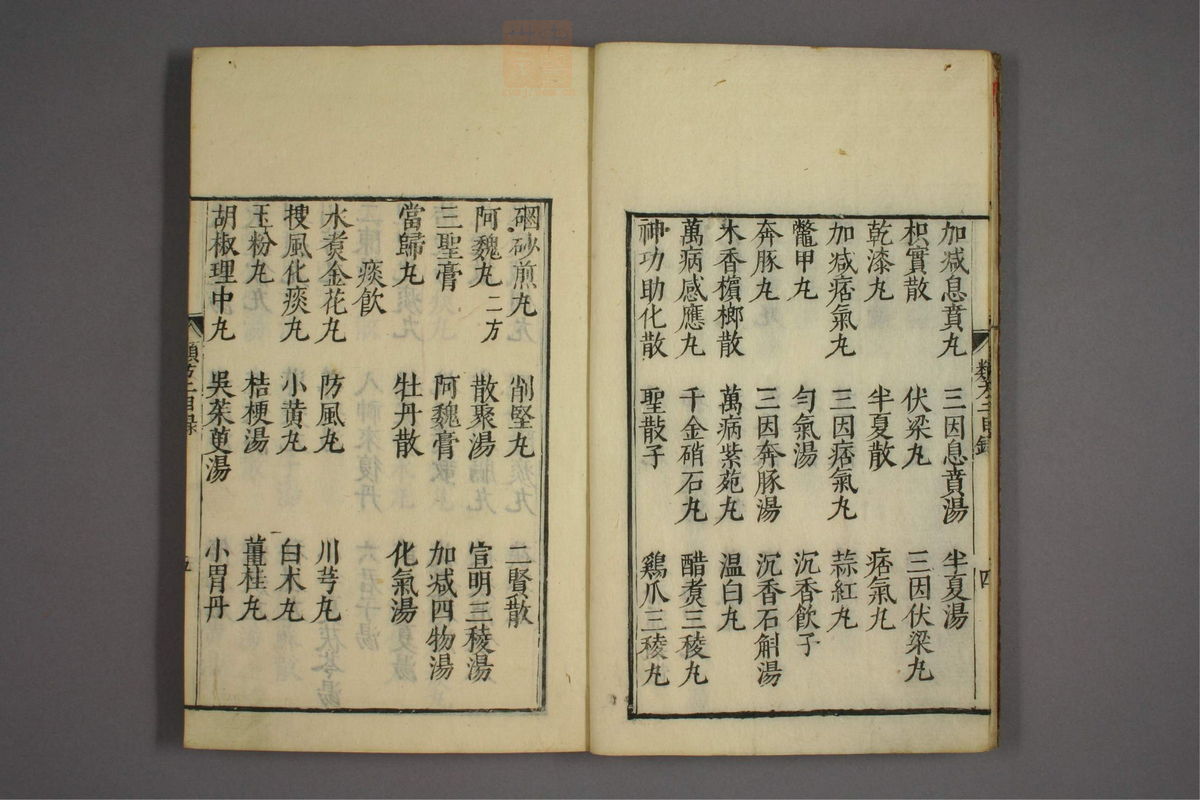 加減息賁丸 三因息賁湯 半夏湯
枳實散 伏梁丸 三因伏梁丸
乾漆丸 半夏散 痞氣丸
加減痞氣丸 三因痞氣丸 蒜紅丸
鱉甲丸 勻氣湯 沉香飲子
奔豚丸 三因奔豚湯 沉香石斛湯
木香檳榔散 萬病紫菀丸 温白丸
萬病感應丸 千金硝石丸 醋煑三稜丸
神功助化散 聖散子 鷄爪三稜丸
類方二目錄 四
硇砂煎丸 削堅丸 二賢散
阿魏丸二方 散聚湯 宣明三稜湯
三聖膏 阿魏膏 加减四物湯
當歸丸 牡丹散 化氣湯
痰飲
水煑金花丸 防風丸 川芎丸
搜風化痰丸 小黄丸 白术丸
玉粉丸 桔梗湯 薑桂丸
胡椒理中丸 吳茱萸湯 小胃丹
類方二目錄 五